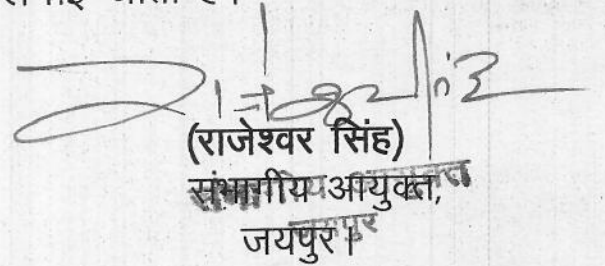 जाता है।
(राजेश्वर सिंह)
संभागीय आयुक्त,
जयपुर।